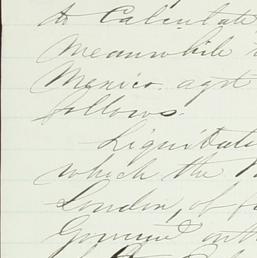 to Calculate
Meanwhile
Mexico. agst
follows.
Liquidate
which the
London, of
Governmt